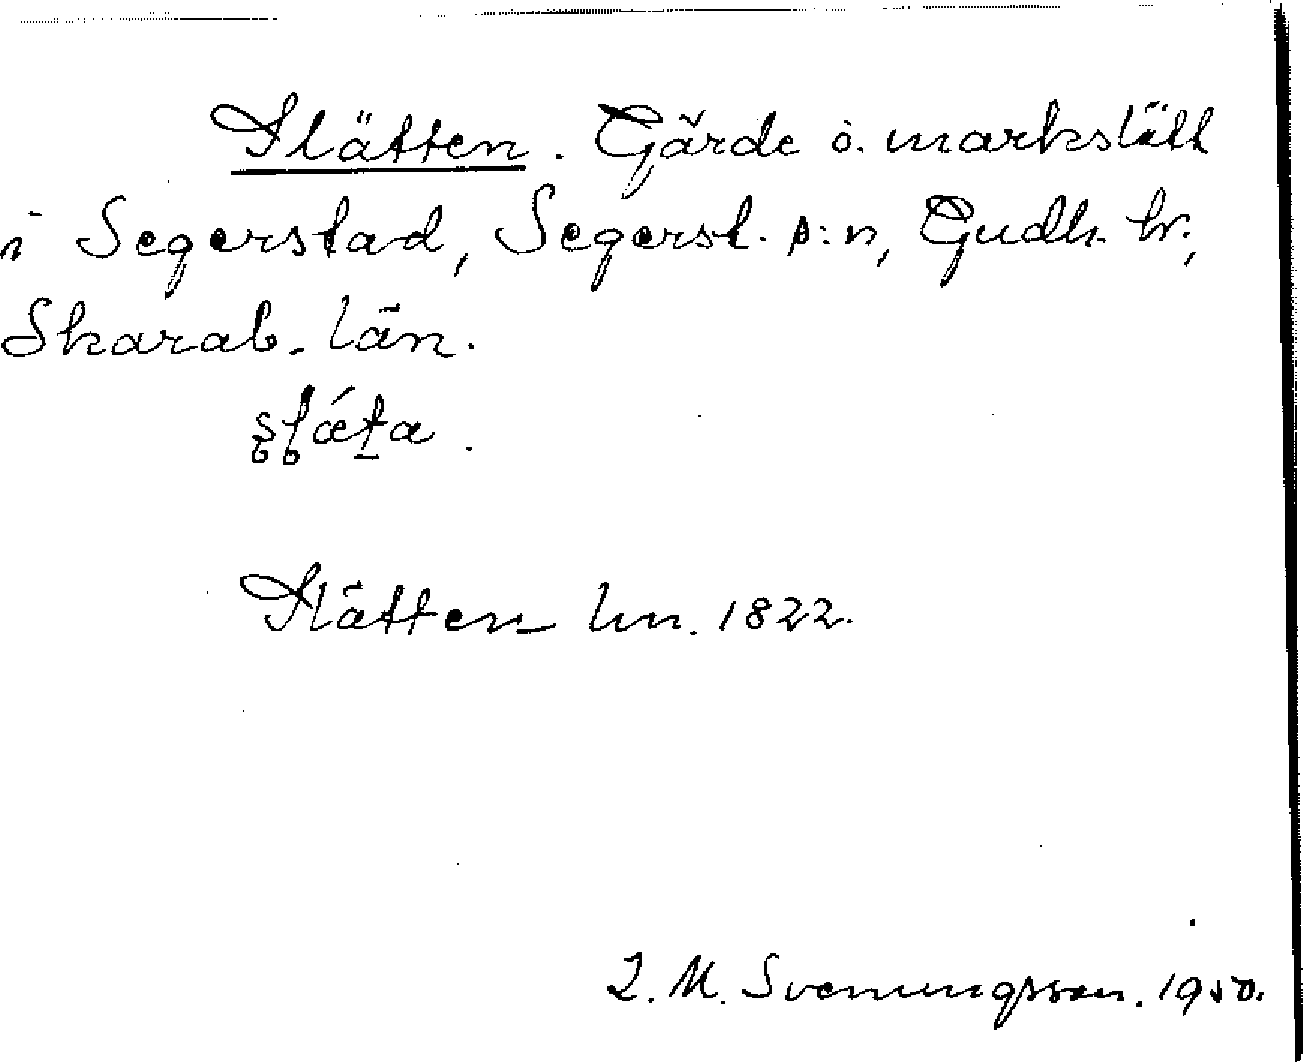 Slätten. Gärde o. markslätt
i Segerstad, Segerst. s:n, Gudh. hr.,
Skarab. län.
slǽta.
Slätten lm. 1822.
M. Svenungsson. 1950.